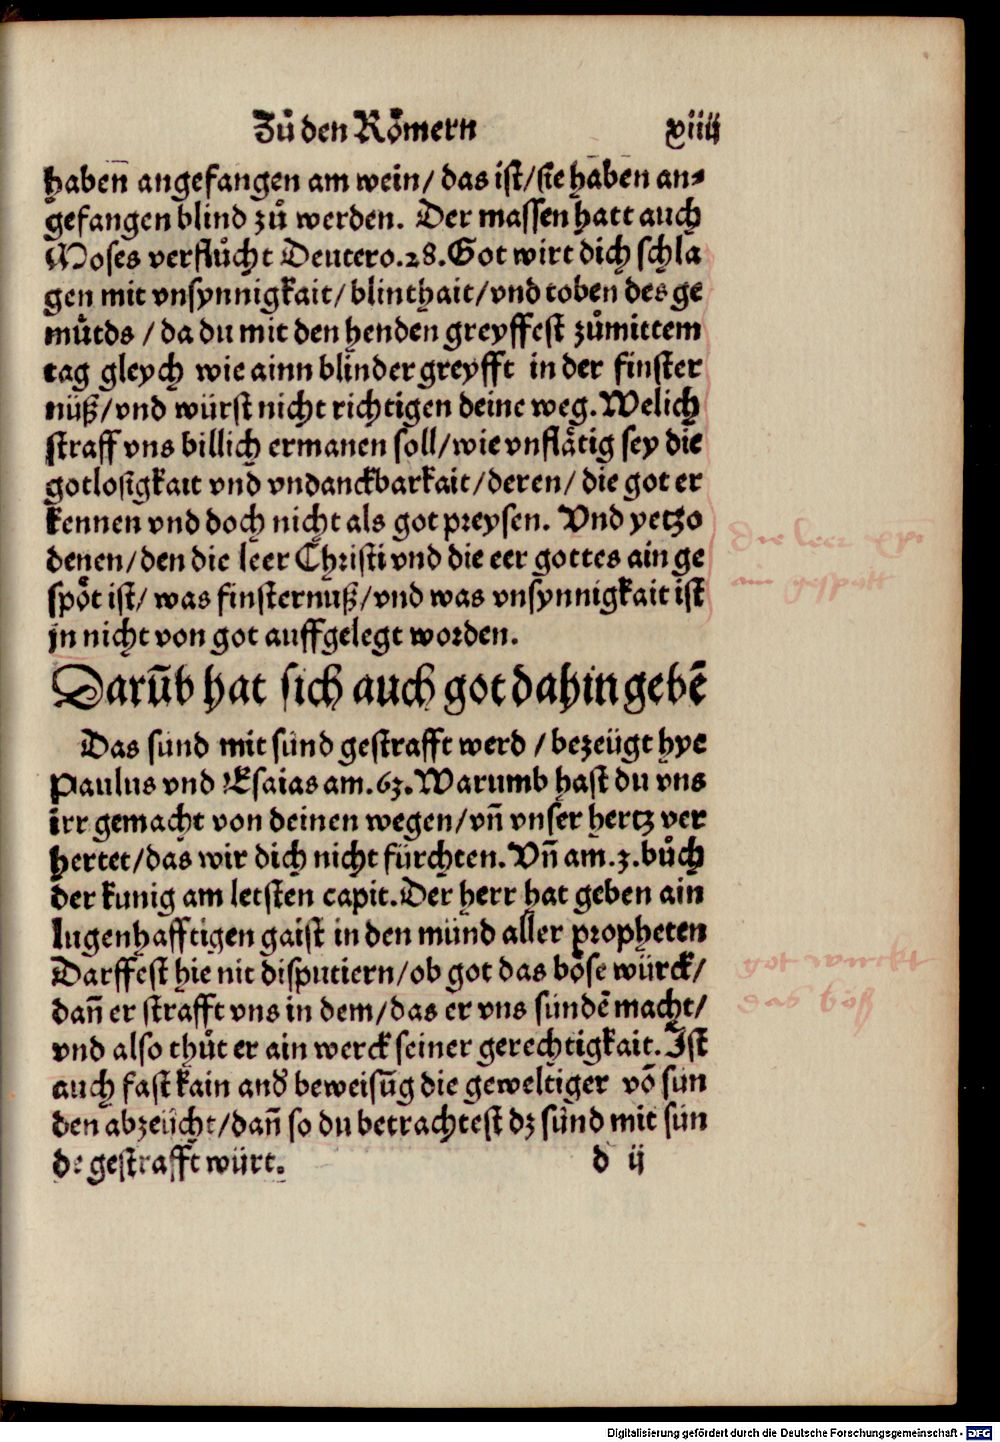 Zů den Rőmern xiiij
haben angefangen am wein/ das ist/ sie haben an⸗
gefangen blind zů werden. Der massen hatt auch
Moses verflůcht Deutero.28. Got wirt dich schla
gen mit vnsynnigkait/ blinthait/ vnd toben des ge
můtds / da du mit den henden greyffest zůmittem
tag gleych wie ainn blinder greyfft in der finster
nüß/ vnd würst nicht richtigen deine weg. Welich
straff vns billich ermanen soll/ wie vnflåtig sey die
gotlosigkait vnd vndanckbarkait/ deren/ die got er
kennen vnd doch nicht als got preysen. Vnd yetzo
denen/ den die leer Christi vnd die eer gottes ain ge
spőt ist/ was finsternuß/ vnd was vnsynnigkait ist
jn nicht von got auffgelegt worden.
die leer xpi
ain gespött
Darūb hat sich auch got dahin gebē
Das sünd mit sünd gestrafft werd / bezeügt hye
Paulus vnd Esaias am.63. Warumb hast du vns
irr gemacht von deinen wegen/ vn̄ vnser hertz ver
hertet/ das wir dich nicht fürchten. Vn̄ am.3. bůch
der kunig am letsten capit. Der herr hat geben ain
lugenhafftigen gaist in den mund aller propheten
Darffest hie nit disputiern/ ob got das böse würck/
dan̄ er strafft vns in dem/ das er vns sündē macht/
vnd also thůt er ain werck seiner gerechtigkait. Ist
auch fast kain and̛ beweisūg die geweltiger vō sün
den abzeücht/ dan̄ so du betrachtest dz sünd mit sün
de gestrafft würt. d ij
got wurckt
das böß
Digitalisierung gefördert durch die Deutsche Forschungsgemeinschaft - DFG